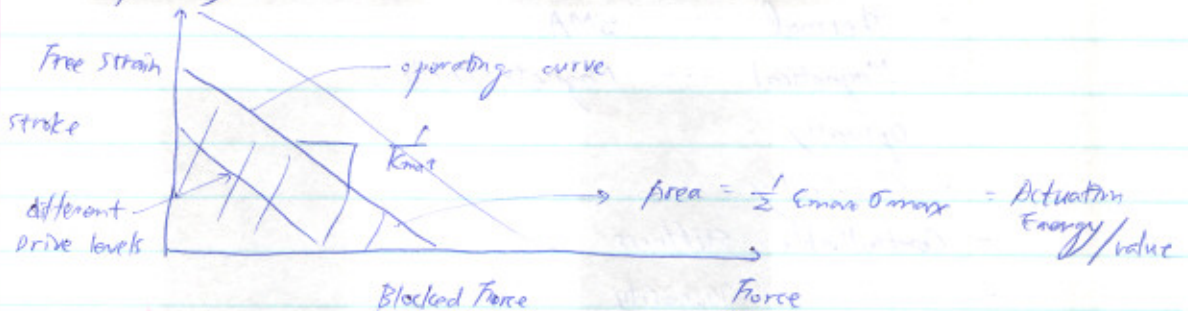 Free strain
operating curve
stroke
1/Kmat
different
Drive levels
Area = 1/2 εmax σmax = Actuation
Energy/value
Blocked Force
Force